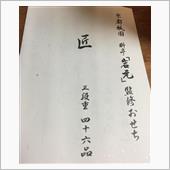 京都祇園 料亭「岩元」監修おせち
匠
三段重 四十六品